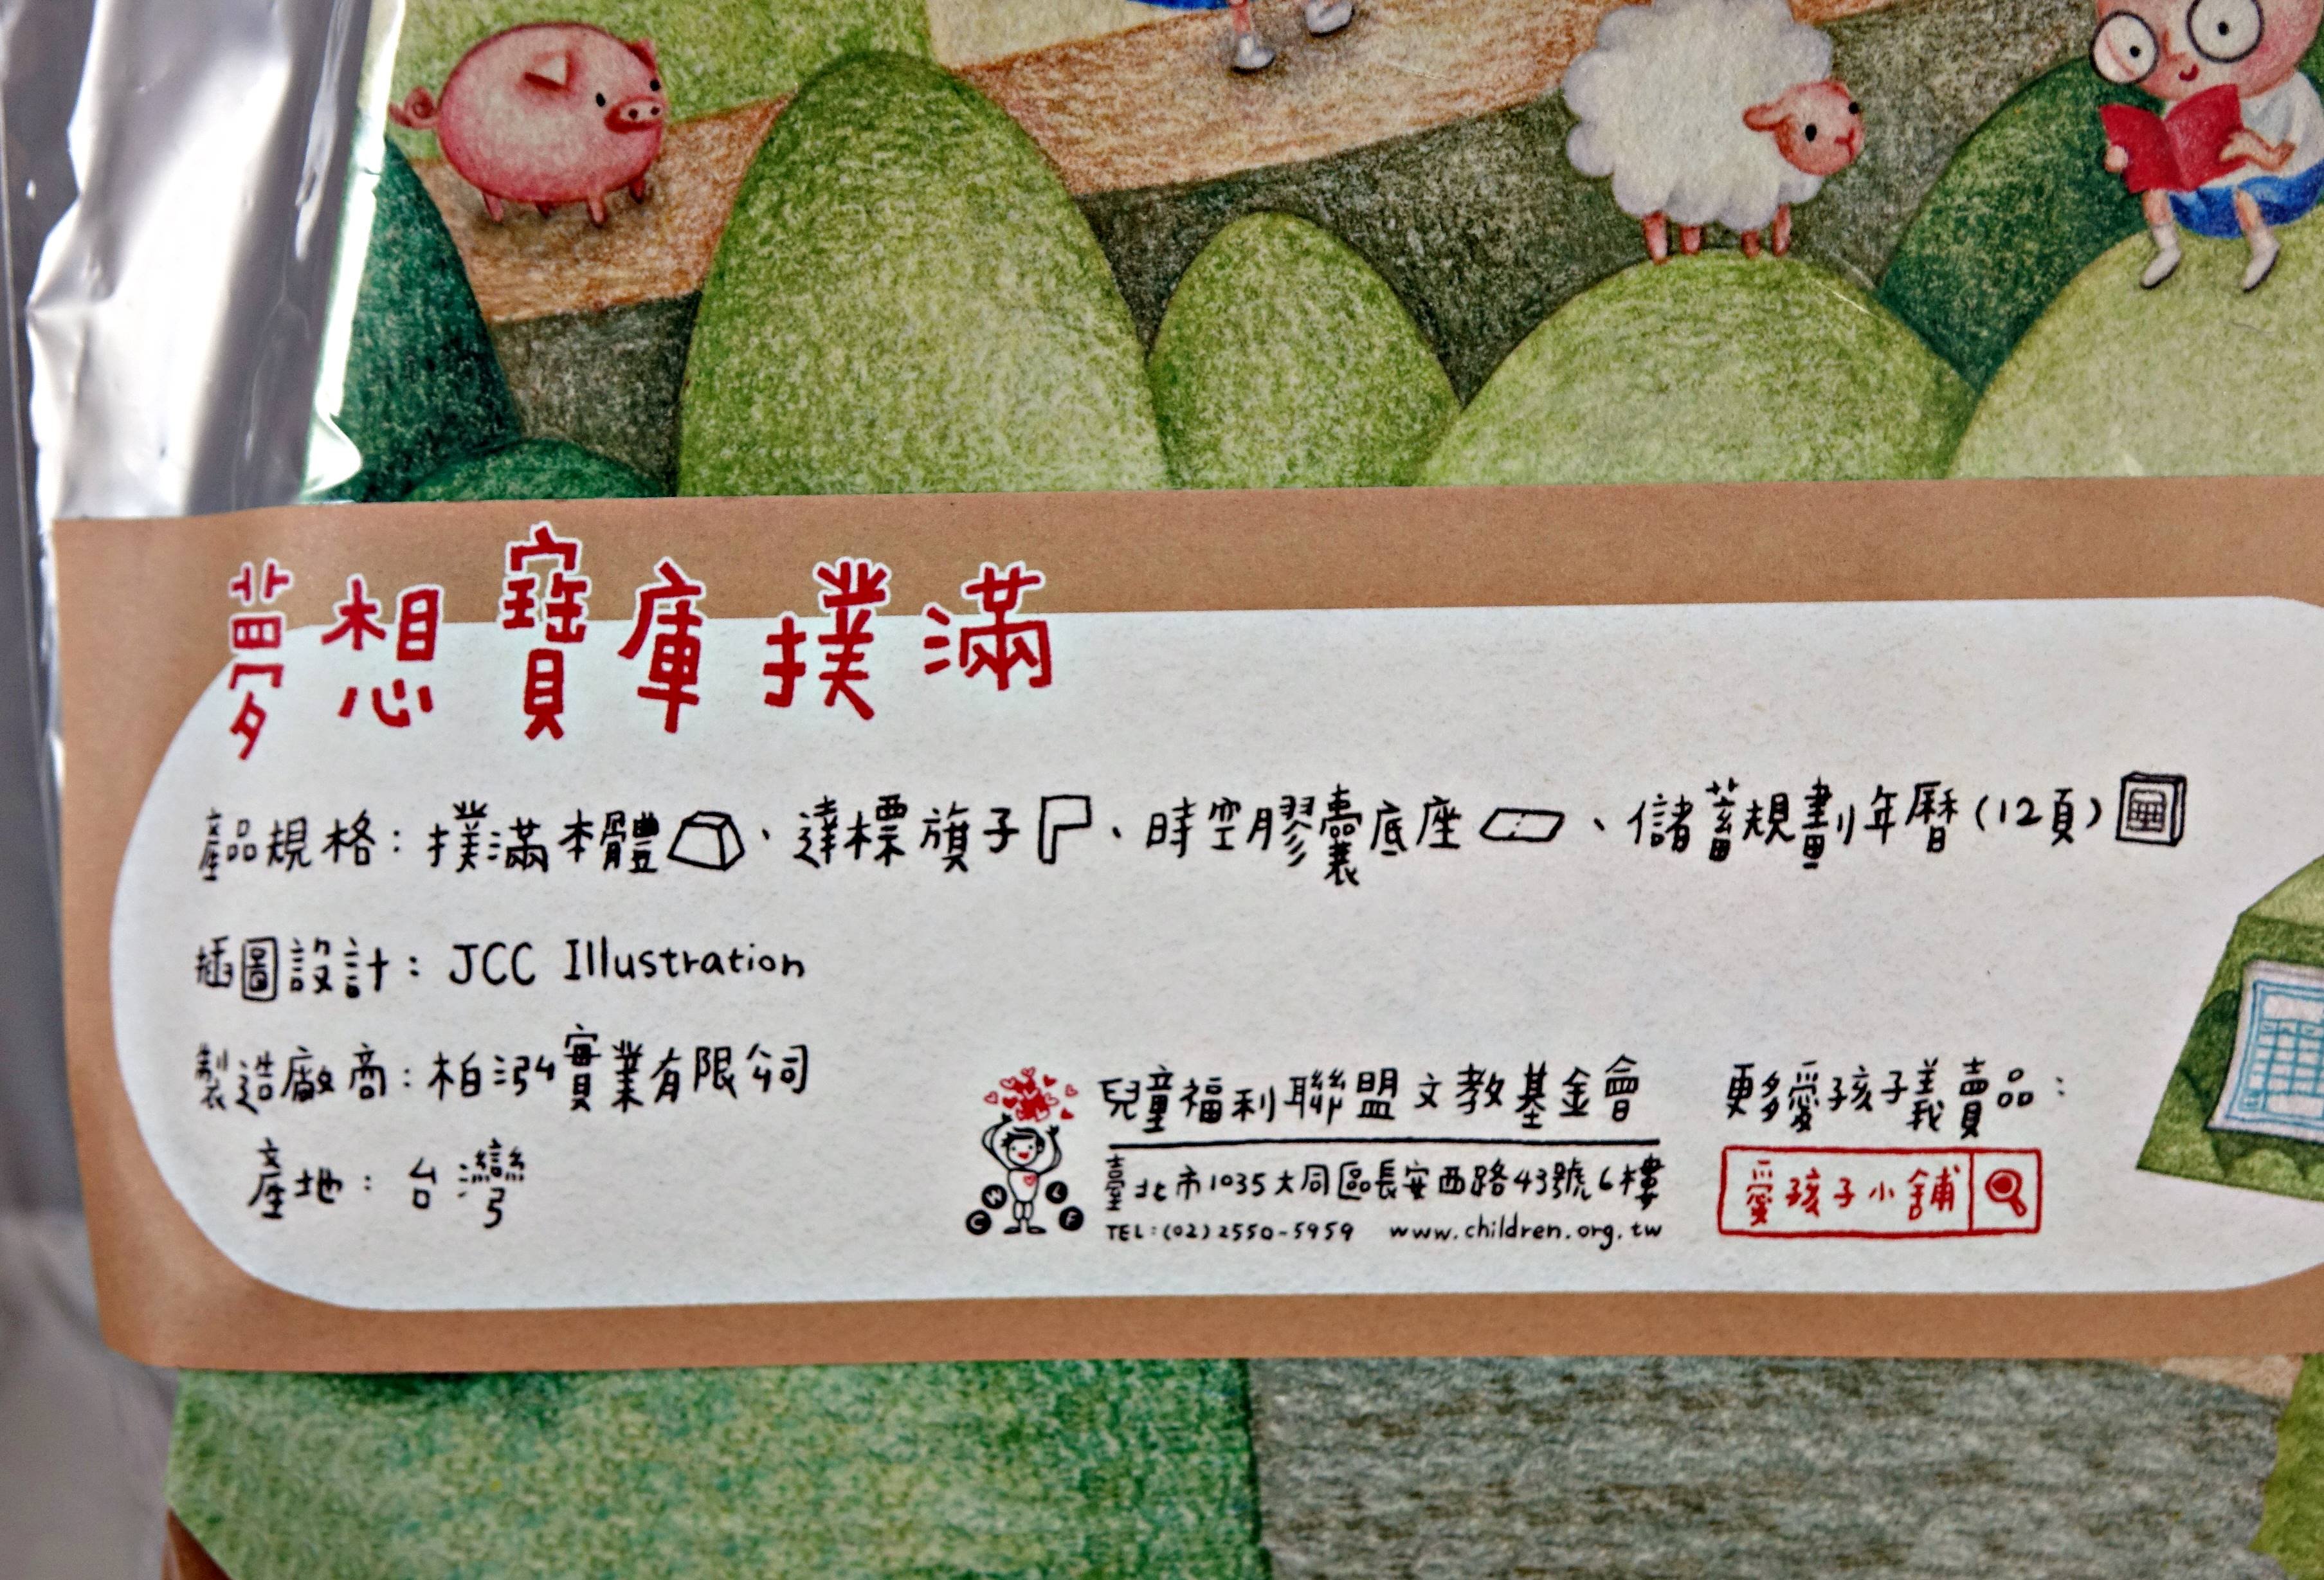 夢想寶庫撲滿
產品規格：撲滿本體、達標旗子、時空膠囊底座、儲蓄規劃年曆(12頁)
插圖設計：JCC Illustration
製造廠商：柏泓實業有限公司
產地：台灣
兒童福利聯盟文教基金會
臺北市1035大同區長安西路43號6樓
TEL:(02)2550-5959 www.children.org.tw
更多愛孩子義賣品：
愛孩子小舖
C W L F